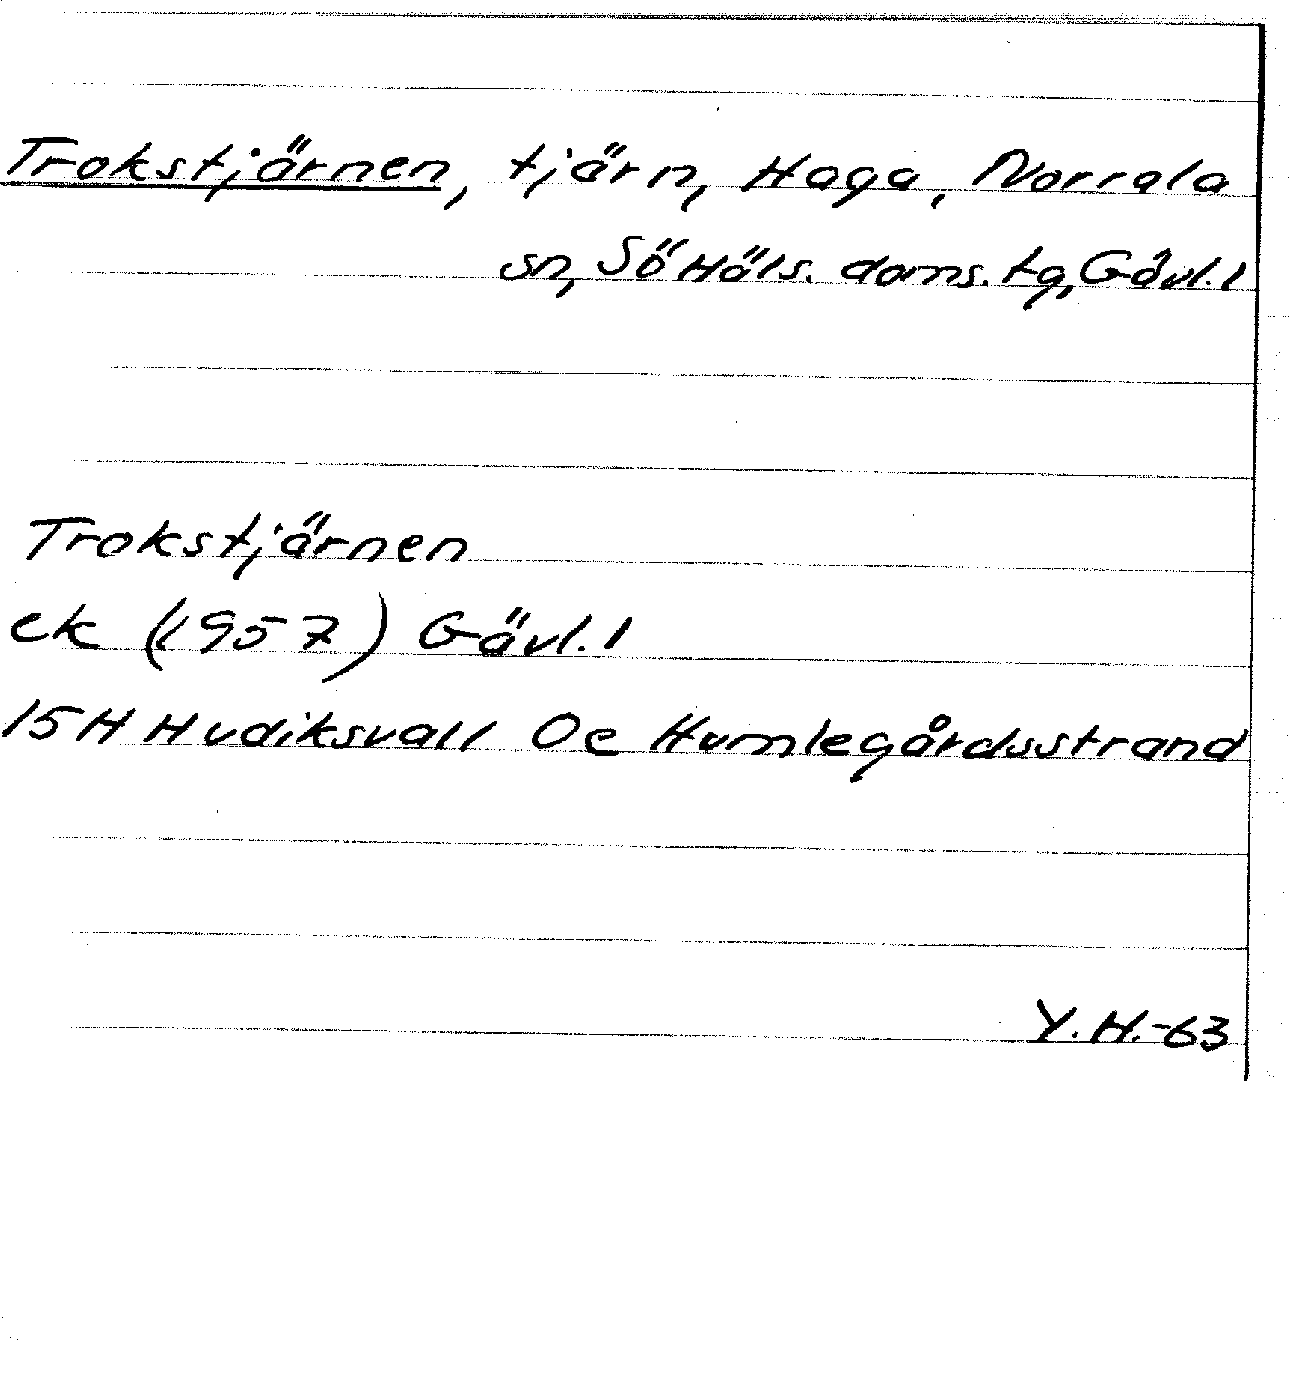 Trokstjärnen, tjärn, Haga, Norrala
sn, Sö Häls. doms. tg, Gävl. l
Trokstjärnen
ek (1957) Gävl. l
15H Hudiksvall Oe Humlegårdsstrand
Y.H.-63